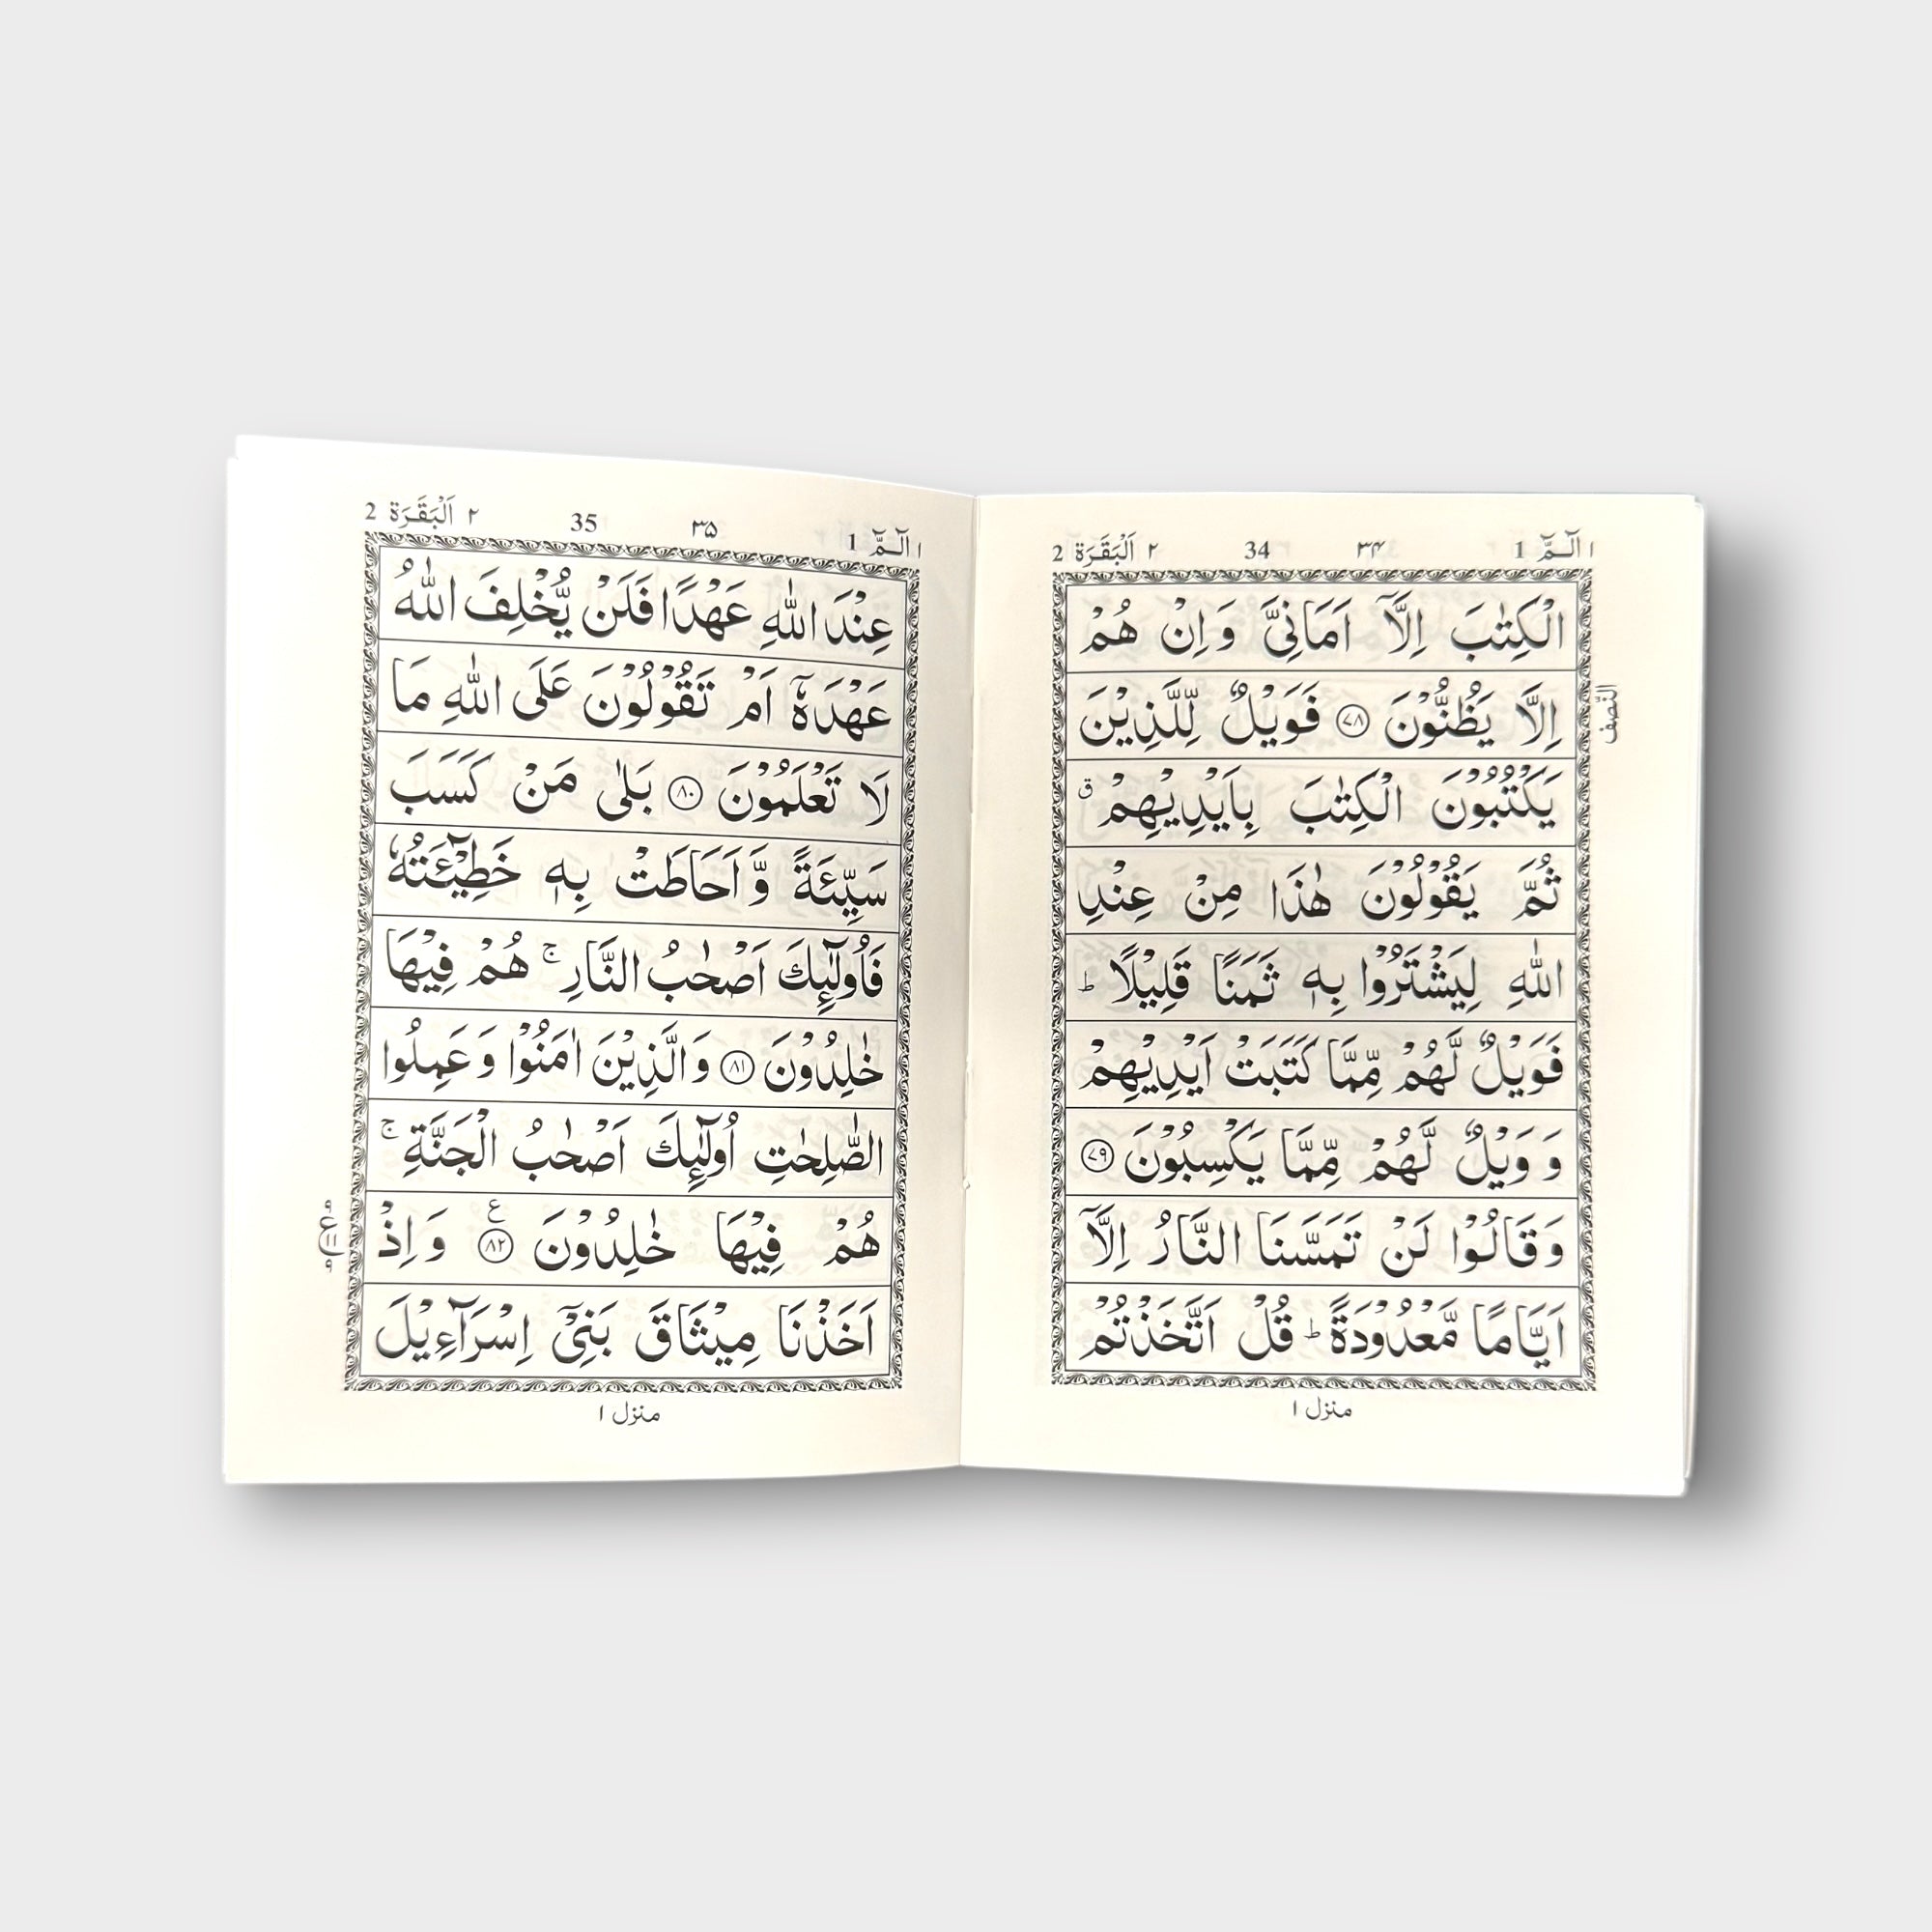 ١ الٓـمّٓ 1 ٣۴ 34 ٢ اَلْبَقَرَة 2
الْكِتٰبَ اِلَّاۤ اَمَانِیَّ وَ اِنْ هُمْ
اِلَّا یَظُنُّوْنَ ﴿٧٨﴾ فَوَیْلٌ لِّلَّذِیْنَ
النّصف
یَكْتُبُوْنَ الْكِتٰبَ بِاَیْدِیْهِمْ ۗق
ثُمَّ یَقُوْلُوْنَ هٰذَا مِنْ عِنْدِ
اللّٰهِ لِیَشْتَرُوْا بِهٖ ثَمَنًا قَلِیْلًا ؕ
فَوَیْلٌ لَّهُمْ مِّمَّا كَتَبَتْ اَیْدِیْهِمْ
وَ وَیْلٌ لَّهُمْ مِّمَّا یَكْسِبُوْنَ ﴿٧٩﴾
وَ قَالُوْا لَنْ تَمَسَّنَا النَّارُ اِلَّاۤ
اَیَّامًا مَّعْدُوْدَةً ؕ قُلْ اَتَّخَذْتُمْ
منزل ١
١ الٓـمّٓ 1 ٣۵ 35 ٢ اَلْبَقَرَة 2
عِنْدَ اللّٰهِ عَهْدًا فَلَنْ یُّخْلِفَ اللّٰهُ
عَهْدَهٗۤ اَمْ تَقُوْلُوْنَ عَلَی اللّٰهِ مَا
لَا تَعْلَمُوْنَ ﴿٨٠﴾ بَلٰی مَنْ كَسَبَ
سَیِّئَةً وَّ اَحَاطَتْ بِهٖ خَطِیْٓـَٔتُهٗ
فَاُولٰٓىِٕكَ اَصْحٰبُ النَّارِ ۚ هُمْ فِیْهَا
خٰلِدُوْنَ ﴿٨١﴾ وَ الَّذِیْنَ اٰمَنُوْا وَ عَمِلُوا
الصّٰلِحٰتِ اُولٰٓىِٕكَ اَصْحٰبُ الْجَنَّةِ ۚ
هُمْ فِیْهَا خٰلِدُوْنَ ﴿٨٢﴾ ع وَ اِذْ
اَخَذْنَا مِیْثَاقَ بَنِیْۤ اِسْرَآءِیْلَ
منزل ١